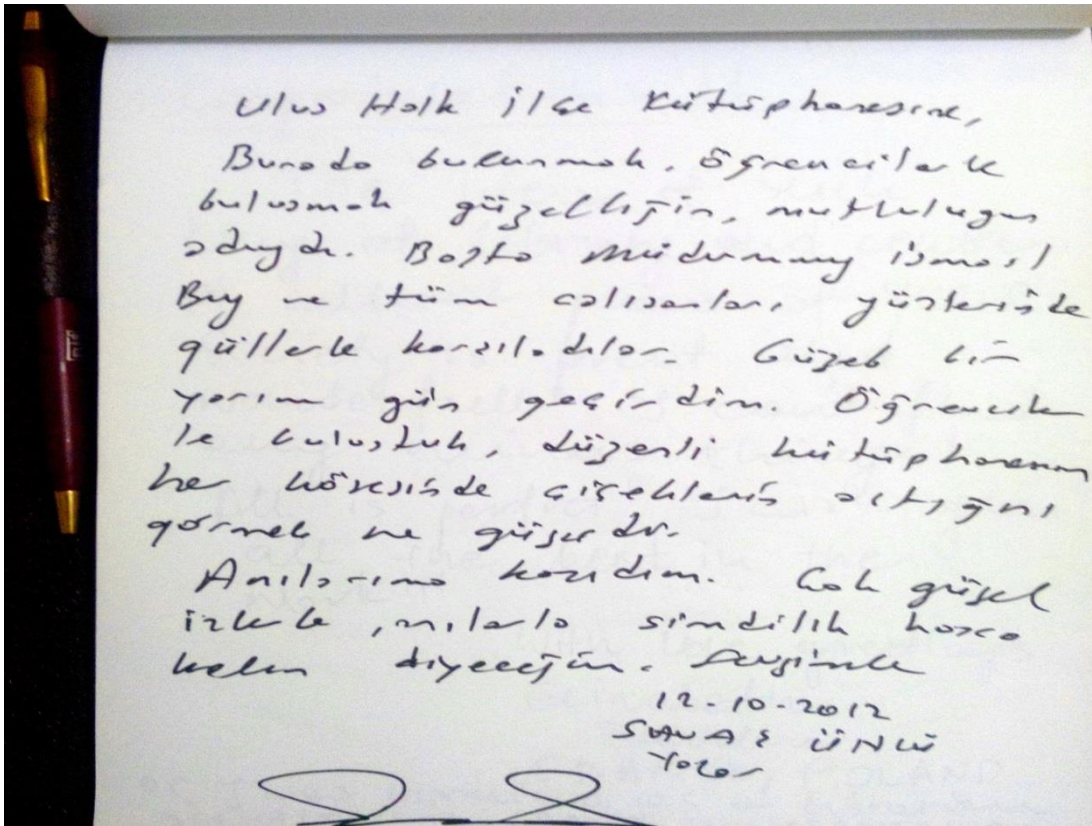 Ulus Halk İlçe Kütüphanesine,
Burada bulunmak, öğrencilerle
buluşmak güzelliğin, mutluluğun
adıydı. Başta müdürümüz İsmail
Bey ve tüm çalışanları yüzlerinde
güllerle karşıladılar. Güzel bir
yarım gün geçirdim. Öğrenciler
le buluştuk, düzenli kütüphanenin
her köşesinde çiçeklerin açtığını
görmek ne güzeldi.
Anılarıma kazıdım. Çok güzel
izlerle, anılarla şimdilik hoşça
kalın diyeceğim. Sevgimle
12-10-2012
SAVAŞ ÜNLÜ
Yazar